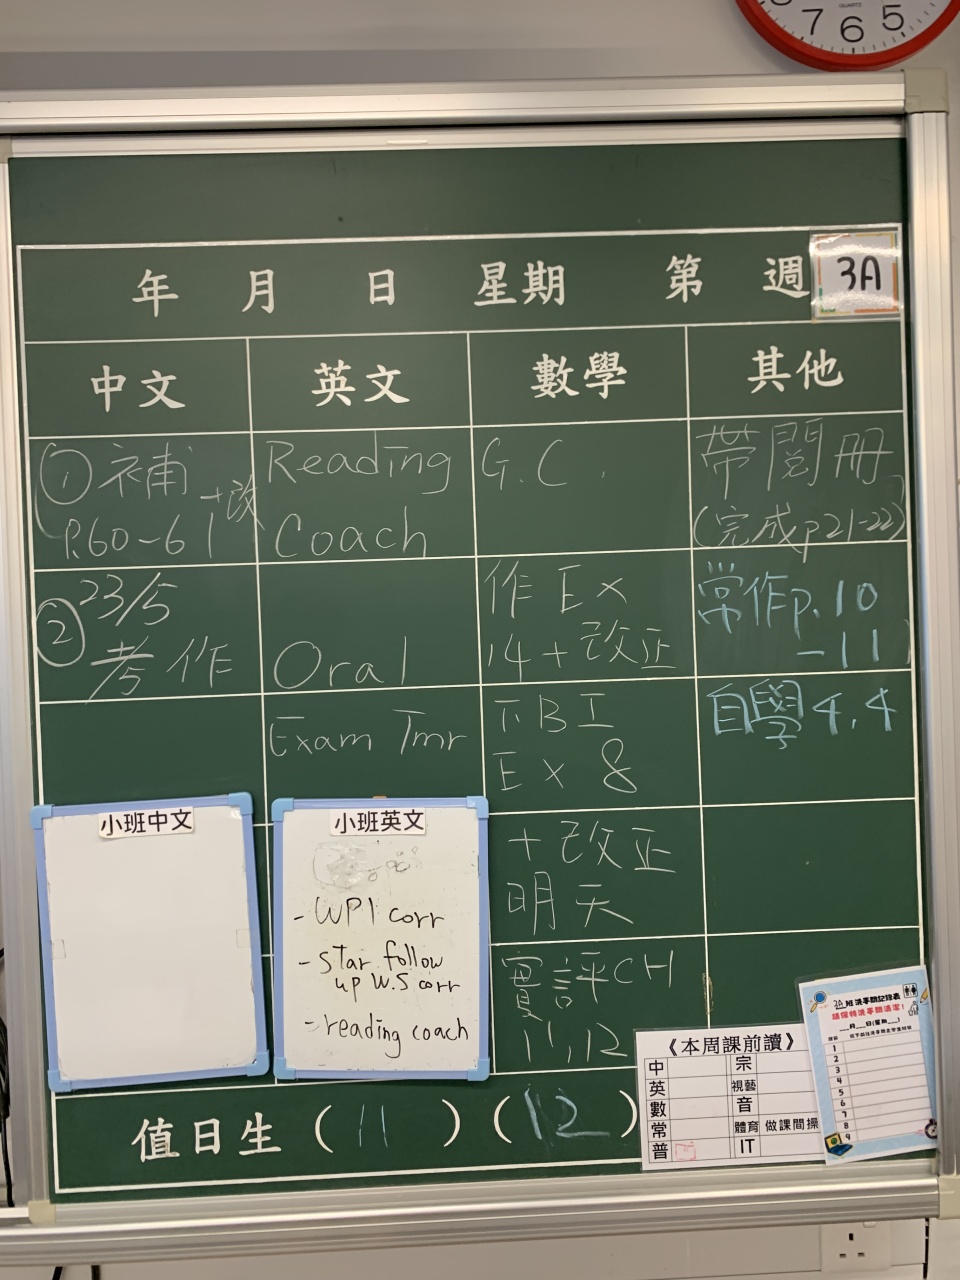 7 6 5
QUARTZ
年 月 日 星期 第 週 3A
中文 英文 數學 其他
① 補
+改
P.60-61
② 23/5
考作
Reading
Coach
Oral
Exam Tmr
G.C.
作 Ex
14 + 改正
TBI
Ex 8
+ 改正
明天
實評CH
11,12
帶閱冊
(完成p21-22)
常作p.10
-11
自學4.4
小班中文
小班英文
- WP1 corr
- star follow
up W.S corr
- reading coach
值日生 ( 11 ) ( 12 )
《本周課前讀》
中 宗
英 視藝
數 音
常 體育 做課間操
普 IT
3A 班洗手間記錄表
請保持洗手間清潔!
月 日(星期 )
1
2
3
4
5
6
7
8
9